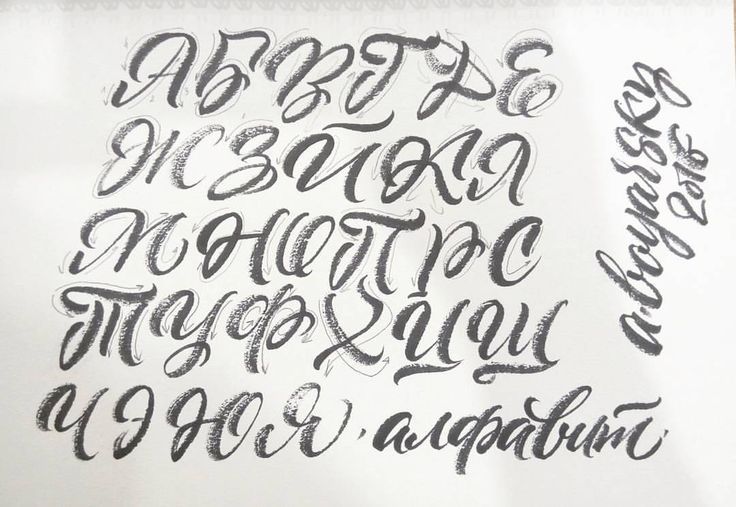 АБВГДЕ
ЖЗЙКЛ
МНОПРС
ТУФХЦЩ
ЧЭЮЯ, алфавит.
a.boyarsky
2016